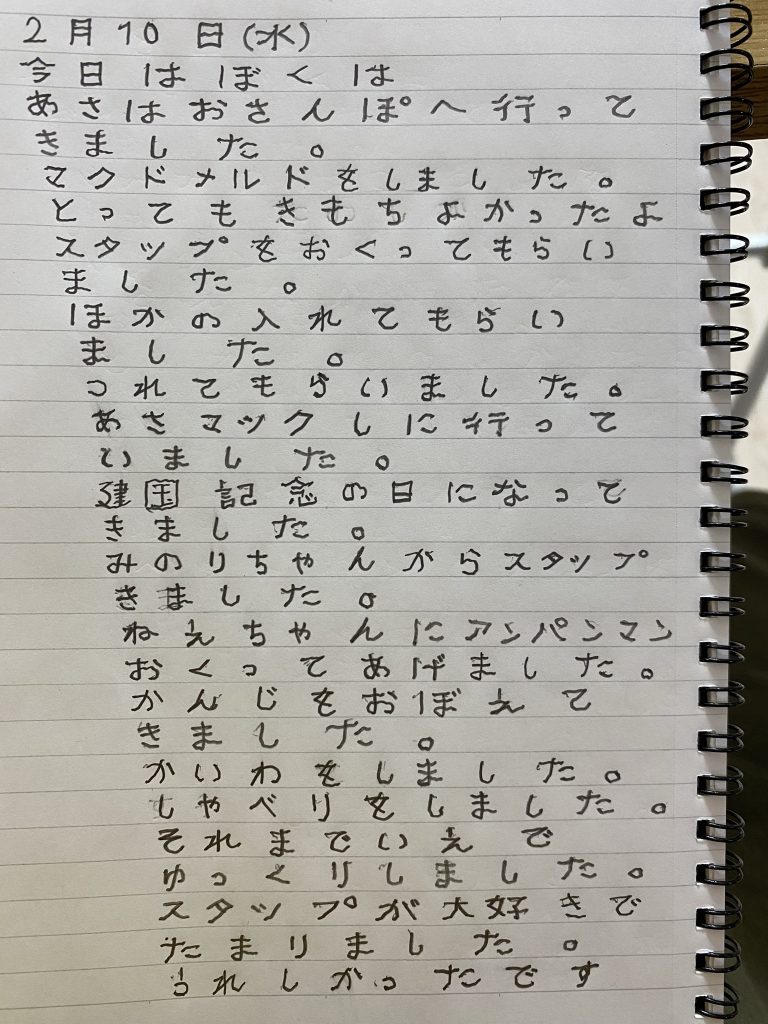 2月10日(水)
今日はぼくは
あさはおさんぽへ行って
きました。
マクドメルドをしました。
とってもきもちよかったよ
スタップをおくってもらい
ました。
ほかの入れてもらい
ました。
つれてもらいました。
あさマックしに行って
いました。
建国記念の日になって
きました。
みのりちゃんがらスタップ
きました。
ねえちゃんにアンパンマン
おくってあげました。
かんじをおぼえて
きました。
かいわをしました。
しゃべりをしました。
それまでいえで
ゆっくりしました。
スタップが大好きで
たまりました。
うれしかったです